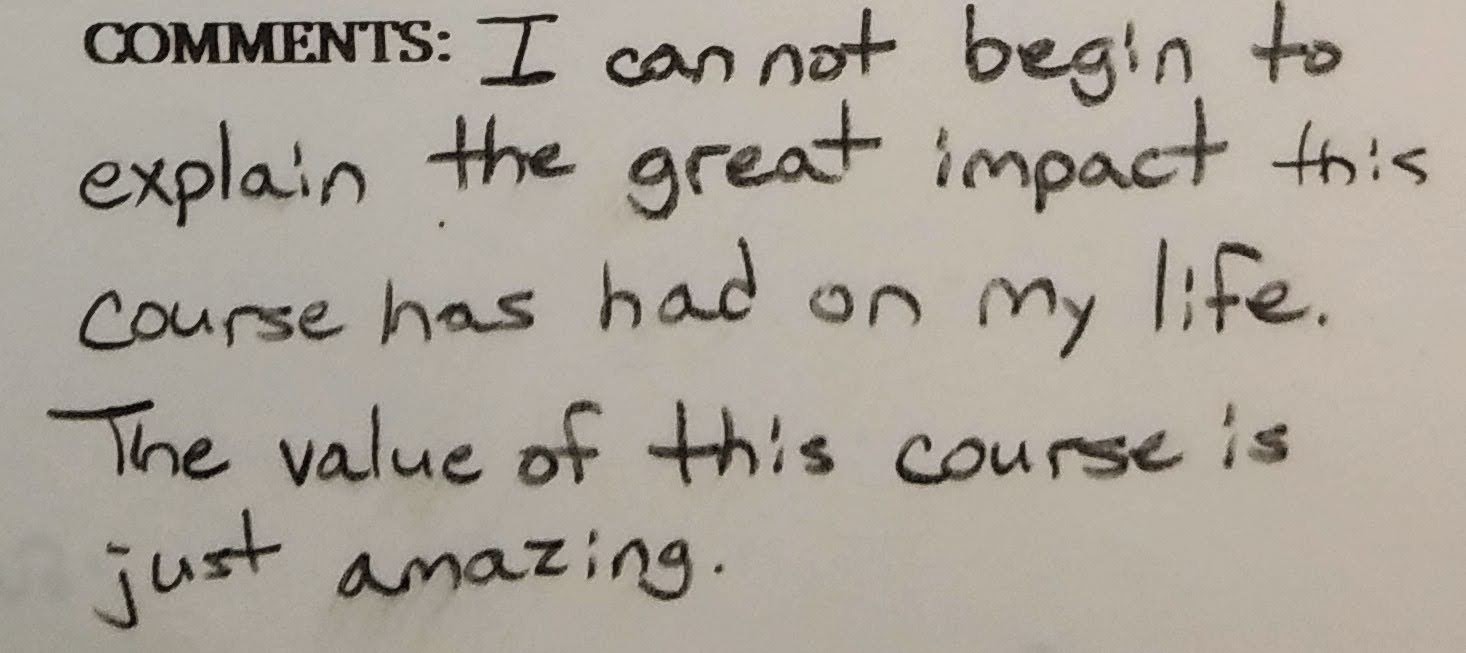 COMMENTS: I can not begin to
explain the great impact this
course has had on my life.
The value of this course is
just amazing.